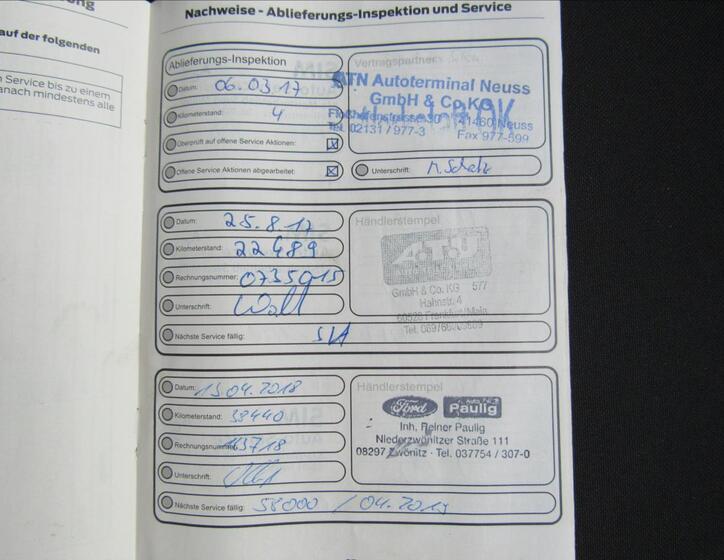 ung
auf der folgenden
Service bis zu einem
anach mindestens alle
Nachweise - Ablieferungs-Inspektion und Service
Ablieferungs-Inspektion
Datum: 06.03.17
Kilometerstand: 4
Überprüft auf offene Service Aktionen: ☒
Offene Service Aktionen abgearbeitet: ☒
Vertragspartner
ATN Autoterminal Neuss
GmbH & Co.KG
Floßhafenstrasse 30 41460 Neuss
Tel. 02131 / 977-3 Fax 977-599
Unterschrift:
Datum: 25.8.17
Kilometerstand: 22489
Rechnungsnummer: 0735915
Unterschrift:
Nächste Service fällig:
Händlerstempel
A.T.U
GmbH & Co. KG 577
Hahnstr. 4
60528 Frankfurt/Main
Datum: 13.04.2018
Kilometerstand: 38440
Rechnungsnummer:
Unterschrift:
Nächste Service fällig: 58000 / 04.2019
Händlerstempel
Ford Paulig
Inh. Reiner Paulig
Niederzwönitzer Straße 111
08297 Zwönitz · Tel. 037754 / 307-0